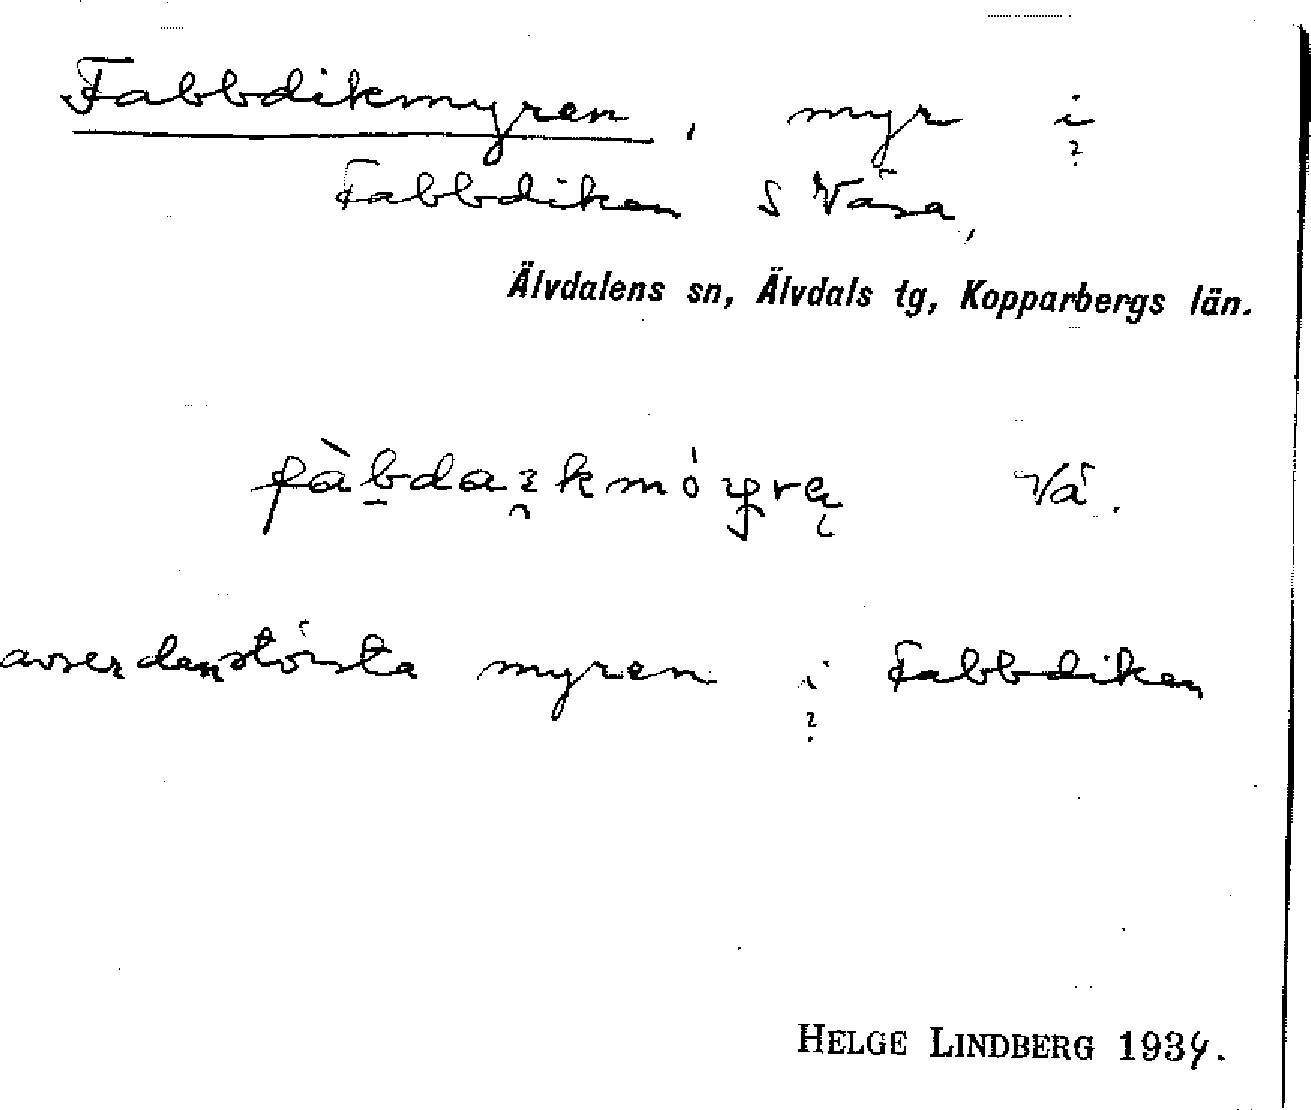 Fabbdikmyren, myr i
?
Fabbdiken S Våsa,
Älvdalens sn, Älvdals tg, Kopparbergs län.
Vå.
avser den största myren i Fabbdiken
?
HELGE LINDBERG 1934.